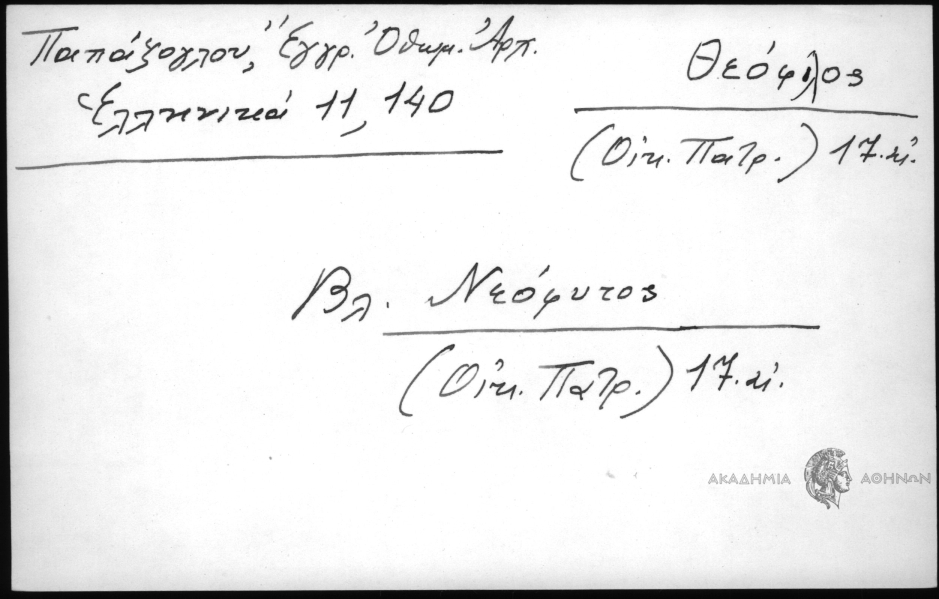 Παπάζογλου, Ἔγγρ. Ὀθωμ. Ἀρχ.
Ἑλληνικά 11, 140
Θεόφιλος
(Οἰκ. Πατρ.) 17. αἰ.
Βλ. Νεόφυτος
(Οἰκ. Πατρ.) 17. αἰ.
ΑΚΑΔΗΜΙΑ ΑΘΗΝΩΝ